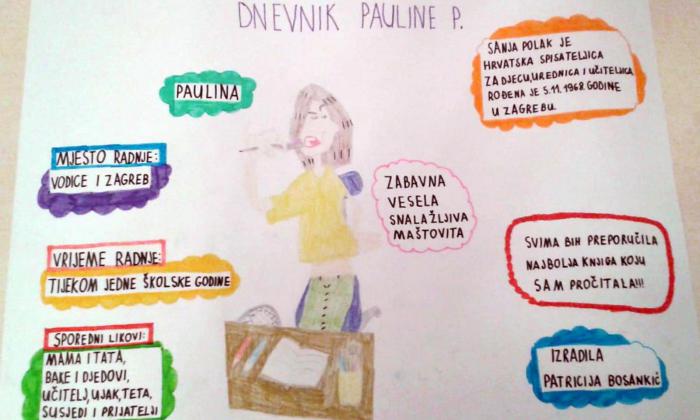 DNEVNIK PAULINE P.
SANJA POLAK JE
HRVATSKA SPISATELJICA
ZA DJECU, UREDNICA I UČITELJICA
ROĐENA JE 5.11.1968. GODINE
U ZAGREBU.
PAULINA
MJESTO RADNJE:
VODICE I ZAGREB
ZABAVNA
VESELA
SNALAŽLJIVA
MAŠTOVITA
VRIJEME RADNJE:
TIJEKOM JEDNE ŠKOLSKE GODINE
SVIMA BIH PREPORUČILA
NAJBOLJA KNJIGA KOJU
SAM PROČITALA!!!
SPOREDNI LIKOVI:
MAMA I TATA,
BAKE I DJEDOVI,
UČITELJ, UJAK, TETA,
SUSJEDI I PRIJATELJI
IZRADILA
PATRICIJA BOSANKIĆ